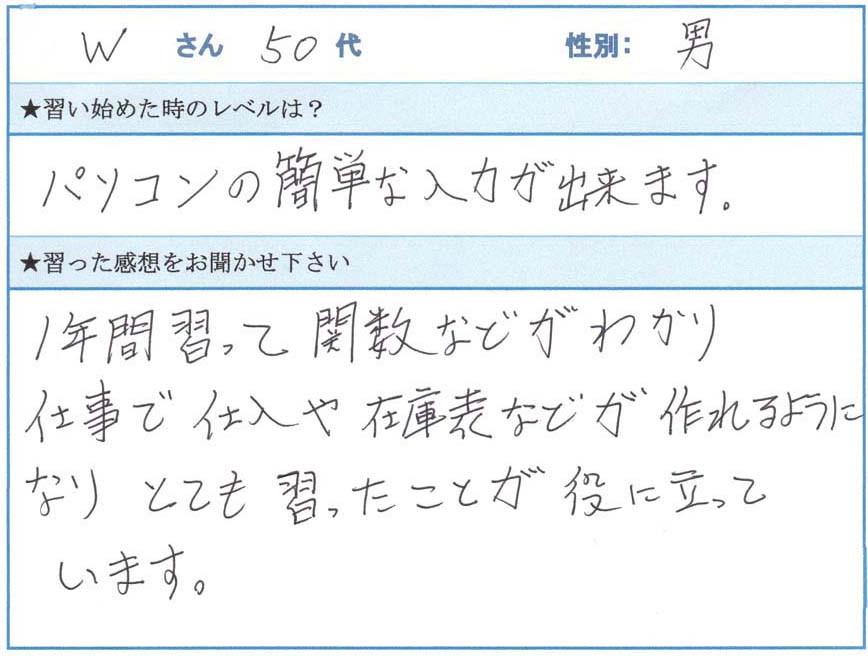 W さん 50 代 性別: 男
★習い始めた時のレベルは？
パソコンの簡単な入力が出来ます。
★習った感想をお聞かせ下さい
1年間習って関数などがわかり
仕事で仕入や在庫表などが作れるように
なりとても習ったことが役に立って
います。